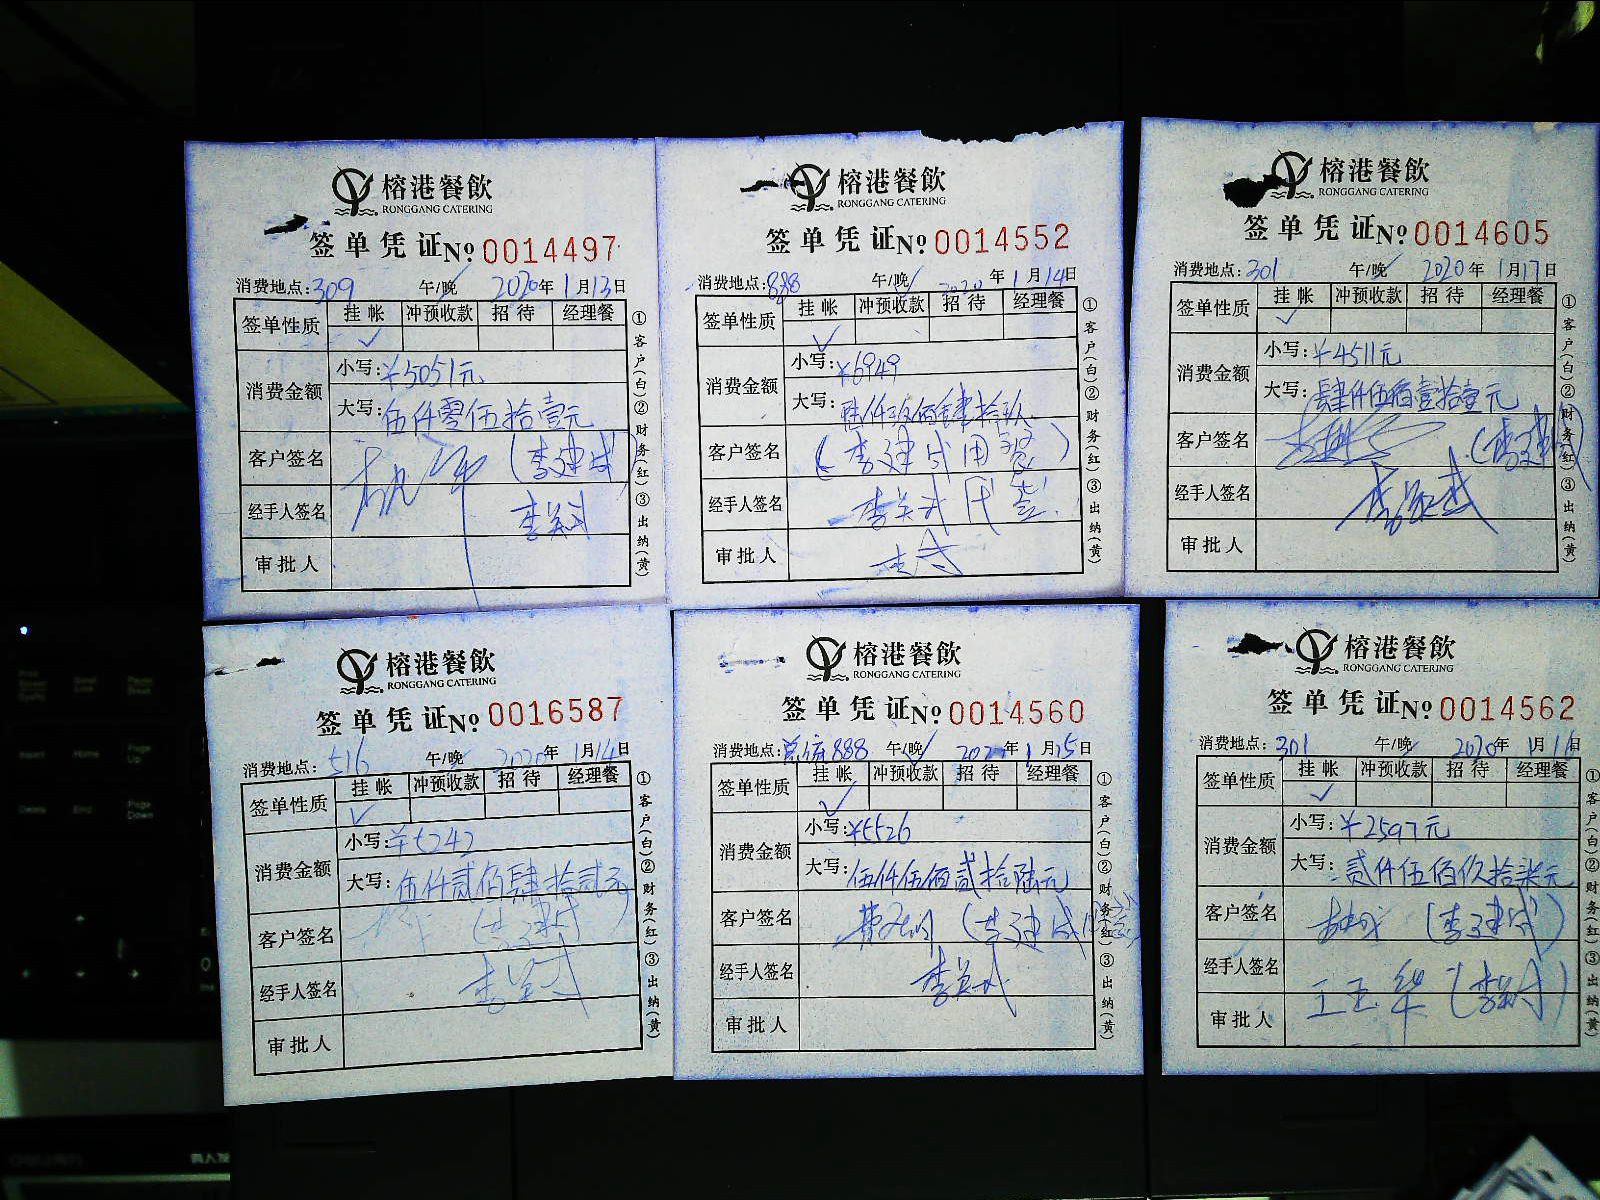 榕港餐飲
RONGGANG CATERING
签单凭证No 0014497
消费地点:309 午/晚 2020年1月13日
签单性质 挂帐 冲预收款 招待 经理餐
✓
消费金额
小写:¥5051元
大写:伍仟零伍拾壹元
客户签名 (李建成)
经手人签名
审批人
①客户(白)②财务(红)③出纳(黄)
榕港餐飲
RONGGANG CATERING
签单凭证No 0014552
消费地点:888 午/晚 2020年1月14日
签单性质 挂帐 冲预收款 招待 经理餐
✓
消费金额
小写:¥6949
大写:陆仟玖佰肆拾玖
客户签名 (李建成用餐)
经手人签名
审批人
①客户(白)②财务(红)③出纳(黄)
榕港餐飲
RONGGANG CATERING
签单凭证No 0014605
消费地点:301 午/晚 2020年1月17日
签单性质 挂帐 冲预收款 招待 经理餐
✓
消费金额
小写:¥4511元
大写:肆仟伍佰壹拾壹元
客户签名 (李建成)
经手人签名
审批人
①客户(白)②财务(红)③出纳(黄)
榕港餐飲
RONGGANG CATERING
签单凭证No 0016587
消费地点:516 午/晚 2020年1月14日
签单性质 挂帐 冲预收款 招待 经理餐
✓
消费金额
小写:¥5242
大写:伍仟贰佰肆拾贰元
客户签名 (李建成)
经手人签名
审批人
①客户(白)②财务(红)③出纳(黄)
榕港餐飲
RONGGANG CATERING
签单凭证No 0014560
消费地点:888 午/晚 2020年1月15日
签单性质 挂帐 冲预收款 招待 经理餐
✓
消费金额
小写:¥5526
大写:伍仟伍佰贰拾陆元
客户签名 (李建成
经手人签名
审批人
①客户(白)②财务(红)③出纳(黄)
榕港餐飲
RONGGANG CATERING
签单凭证No 0014562
消费地点:301 午/晚 2020年1月16日
签单性质 挂帐 冲预收款 招待 经理餐
✓
消费金额
小写:¥2597元
大写:贰仟伍佰玖拾柒元
客户签名 (李建成)
经手人签名 王玉华
审批人
①客户(白)②财务(红)③出纳(黄)